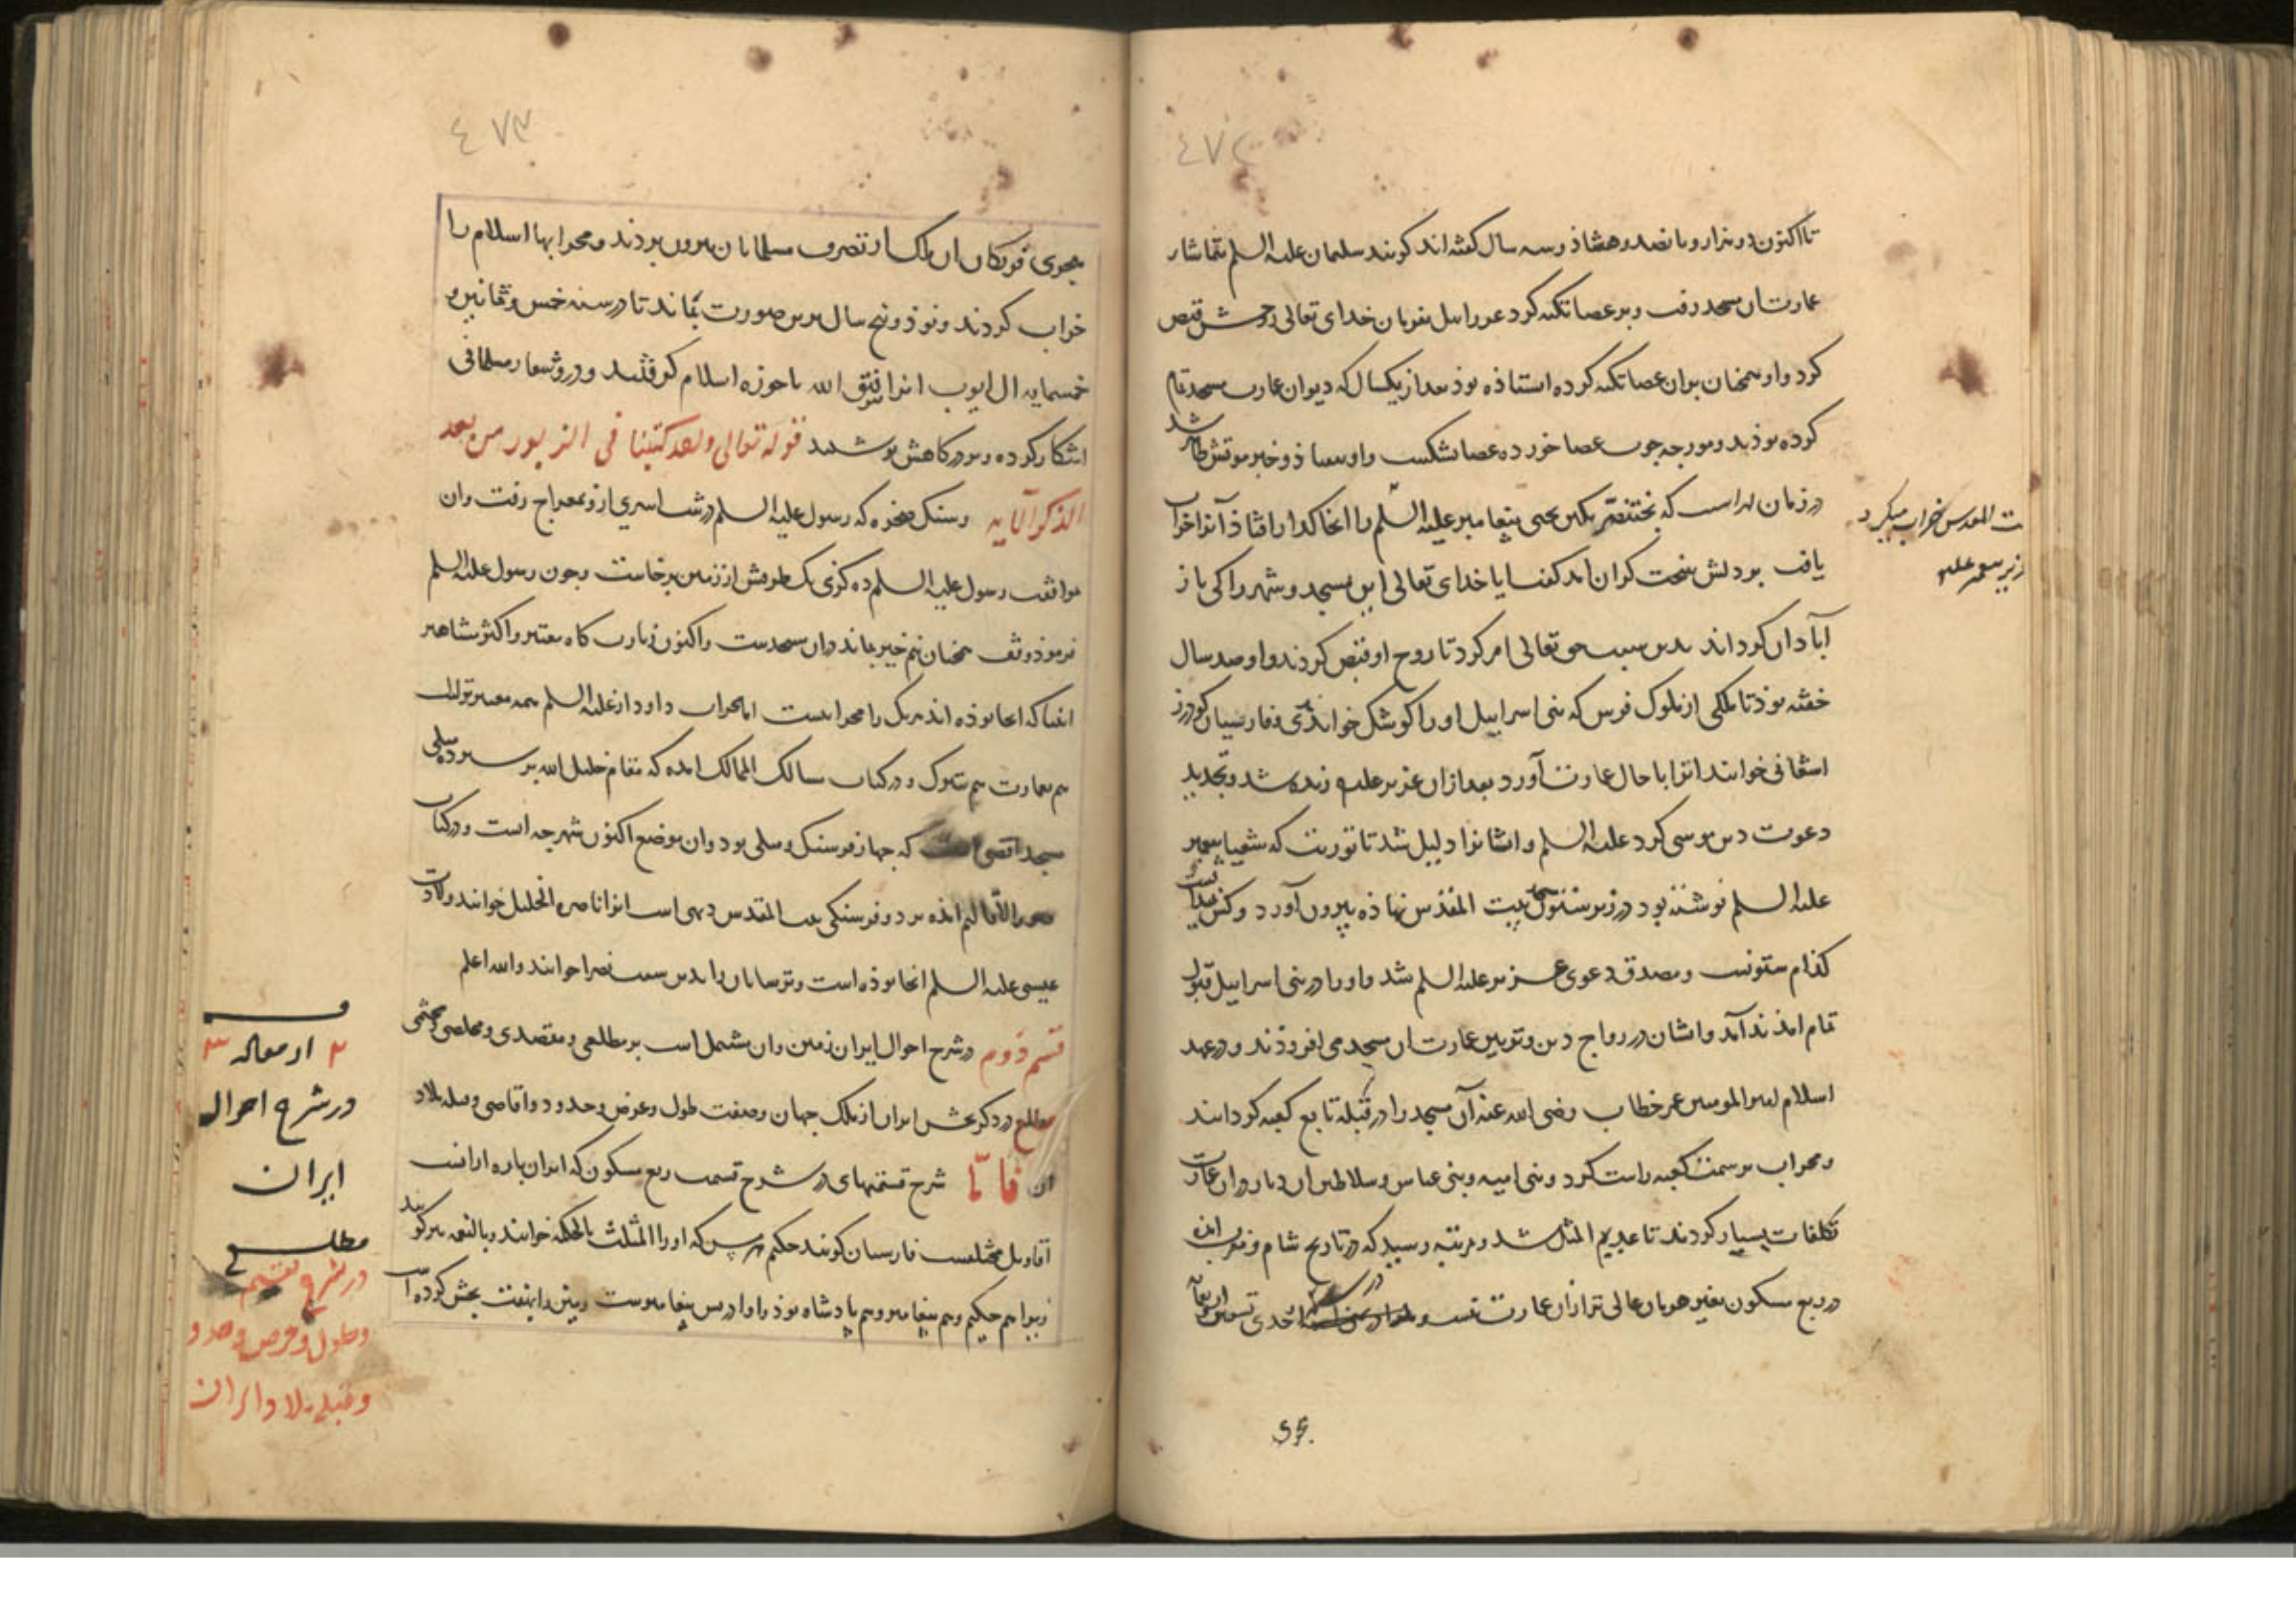 ٤٧٢
تا اکنون دو هزار و بانصد و هشتاذ و سه سال کفته‌اند کویند سلیمان علیه السلم بتماشار
عمارت ان مسجد رفت و بر عصا تکیه کرد عزراییل بفرمان خدای تعالی روحش قبض
کرد و او همچنان بر ان عصا تکیه کرده استاذه بوذ بعد از یکسال که دیوان عمارت مسجد تمام
کرده بوذند و مورچه جوب عصا خورده عصا شکست و او بیفتاذ و خبر موتش ظاهر شد
در زمان لهراسب که بختنصر بکین یحیی پیغامبر علیه السلم را انجا کذار افتاذ آنرا خراب
یافت بر دلش سخت کران امد کفت ایا خدای تعالی این مسجد و شهر را کی باز
آباذان کرداند بدین سبب حق تعالی امر کرد تا روح او قبض کردند و او صد سال
خفته بوذ تا ملکی از ملوک فرس که بنی اسراییل او را کوشک خواندندی و فارسیان کودرز
اشغانی خوانند انرا با حال عمارت آورد بعد از ان عزیر علیه زنده شد و تجدید
دعوت دین موسی کرد علیه السلم و ایشانرا دلیل شد تا توریت که شعیا پیغمبر
علیه السلم نوشته بود در زیر ستون بیت المقدس نهاذه بیرون آورد و کس ندانست
کذام ستونست و مصدق دعوی عزیر علیه السلم شد و او را در بنی اسراییل قبول
تمام امذ ندآمد و ایشان در رواج دین و تزیین عمارت ان مسجد می افزوذند و در عهد
اسلام امیر المومنین عمر خطاب رضی الله عنه آن مسجد را در قبله تابع کعبه کردانند
و محراب بر سمت کعبه راست کرد و بنی امیه و بنی عباس و سلاطین ان دیار در ان عمارت
تکلفات بسیار کردند تا عدیم المثل شد و مرتبه رسید که در تاریخ شام و مغرب امذه
در ربع مسکون بغیر هرمان عالی تر از ان عمارت نیست و در سنه احدی تسعین و اربعمایه
ت المقدس خراب میکرد
زیر پیغمبر علیه
٤٧٣
هجری فرنکان ان ملک از تصرف مسلمانان بیرون بردند و محرابها اسلام را
خراب کردند و نوذ و پنج سال برین صورت بماند تا در سنه خمس و ثمانین و
خمسمایه ال ایوب انرا بتوفیق الله با حوزه اسلام کرفتند و در و شعار مسلمانی
اشکار کرده و بر درکاهش نوشتند قوله تعالی ولقد کتبنا فی الزبور من بعد
الذکر الآیه و سنک صخره که رسول علیه السلم در شب اسری از و بمعراج رفت و ان
موافقت رسول علیه السلم ده کزی یک طرفش از زمین برخاست و جون رسول علیه السلم
فرموذ وقف همچنان نیم خیز بماند و ان مسجدست و اکنون زیارت کاه معتبر و اکثر مشاهیر
انبیا که انجا بوذه اند هر یک را محرابیست اما محراب داود از علیه السلم همه معتبرتر است
هم بعمارت هم بتبرک و در کتاب مسالک الممالک امده که مقام خلیل الله بر سیزده میلی
مسجد اقصی است که جهار فرسنک و میلی بود و ان موضع اکنون شهرچه است و در کتاب
صور الاقالیم امذه بر دو فرسنکی بیت المقدس دیهی است انرا ناصره الخلیل خوانند و ولادت
عیسی علیه السلم انجا بوذه است و ترسایان را بدین سبب نصرا خوانند و الله اعلم
قسم دوم در شرح احوال ایران زمین و ان مشتمل است بر مطلعی و مقصدی و مخلصی و مختمی
مطلع در ذکر بخش ایران از ملک جهان و صفت طول و عرض و حدود و اقاصی و قبله بلاد
ان فامّا شرح قسمتهای در شرح قسمت ربع مسکون که ایران پاره از انست
اقاویل مختلفست فارسیان کویند حکیم هرمس که او را المثلث بالحکمة خوانند و بالنعمه نیز کویند
زیرا هم حکیم و هم پیغامبر و هم پادشاه بوذ و او ادریس پیغامبرست زمین را بهفت بخش کرده است
قسم
۲ از مقاله ۳
در شرح احوال
ایران
مطلع
در شرح تقسیم
و طول و عرض و حدو
و قبله بلاد ایران